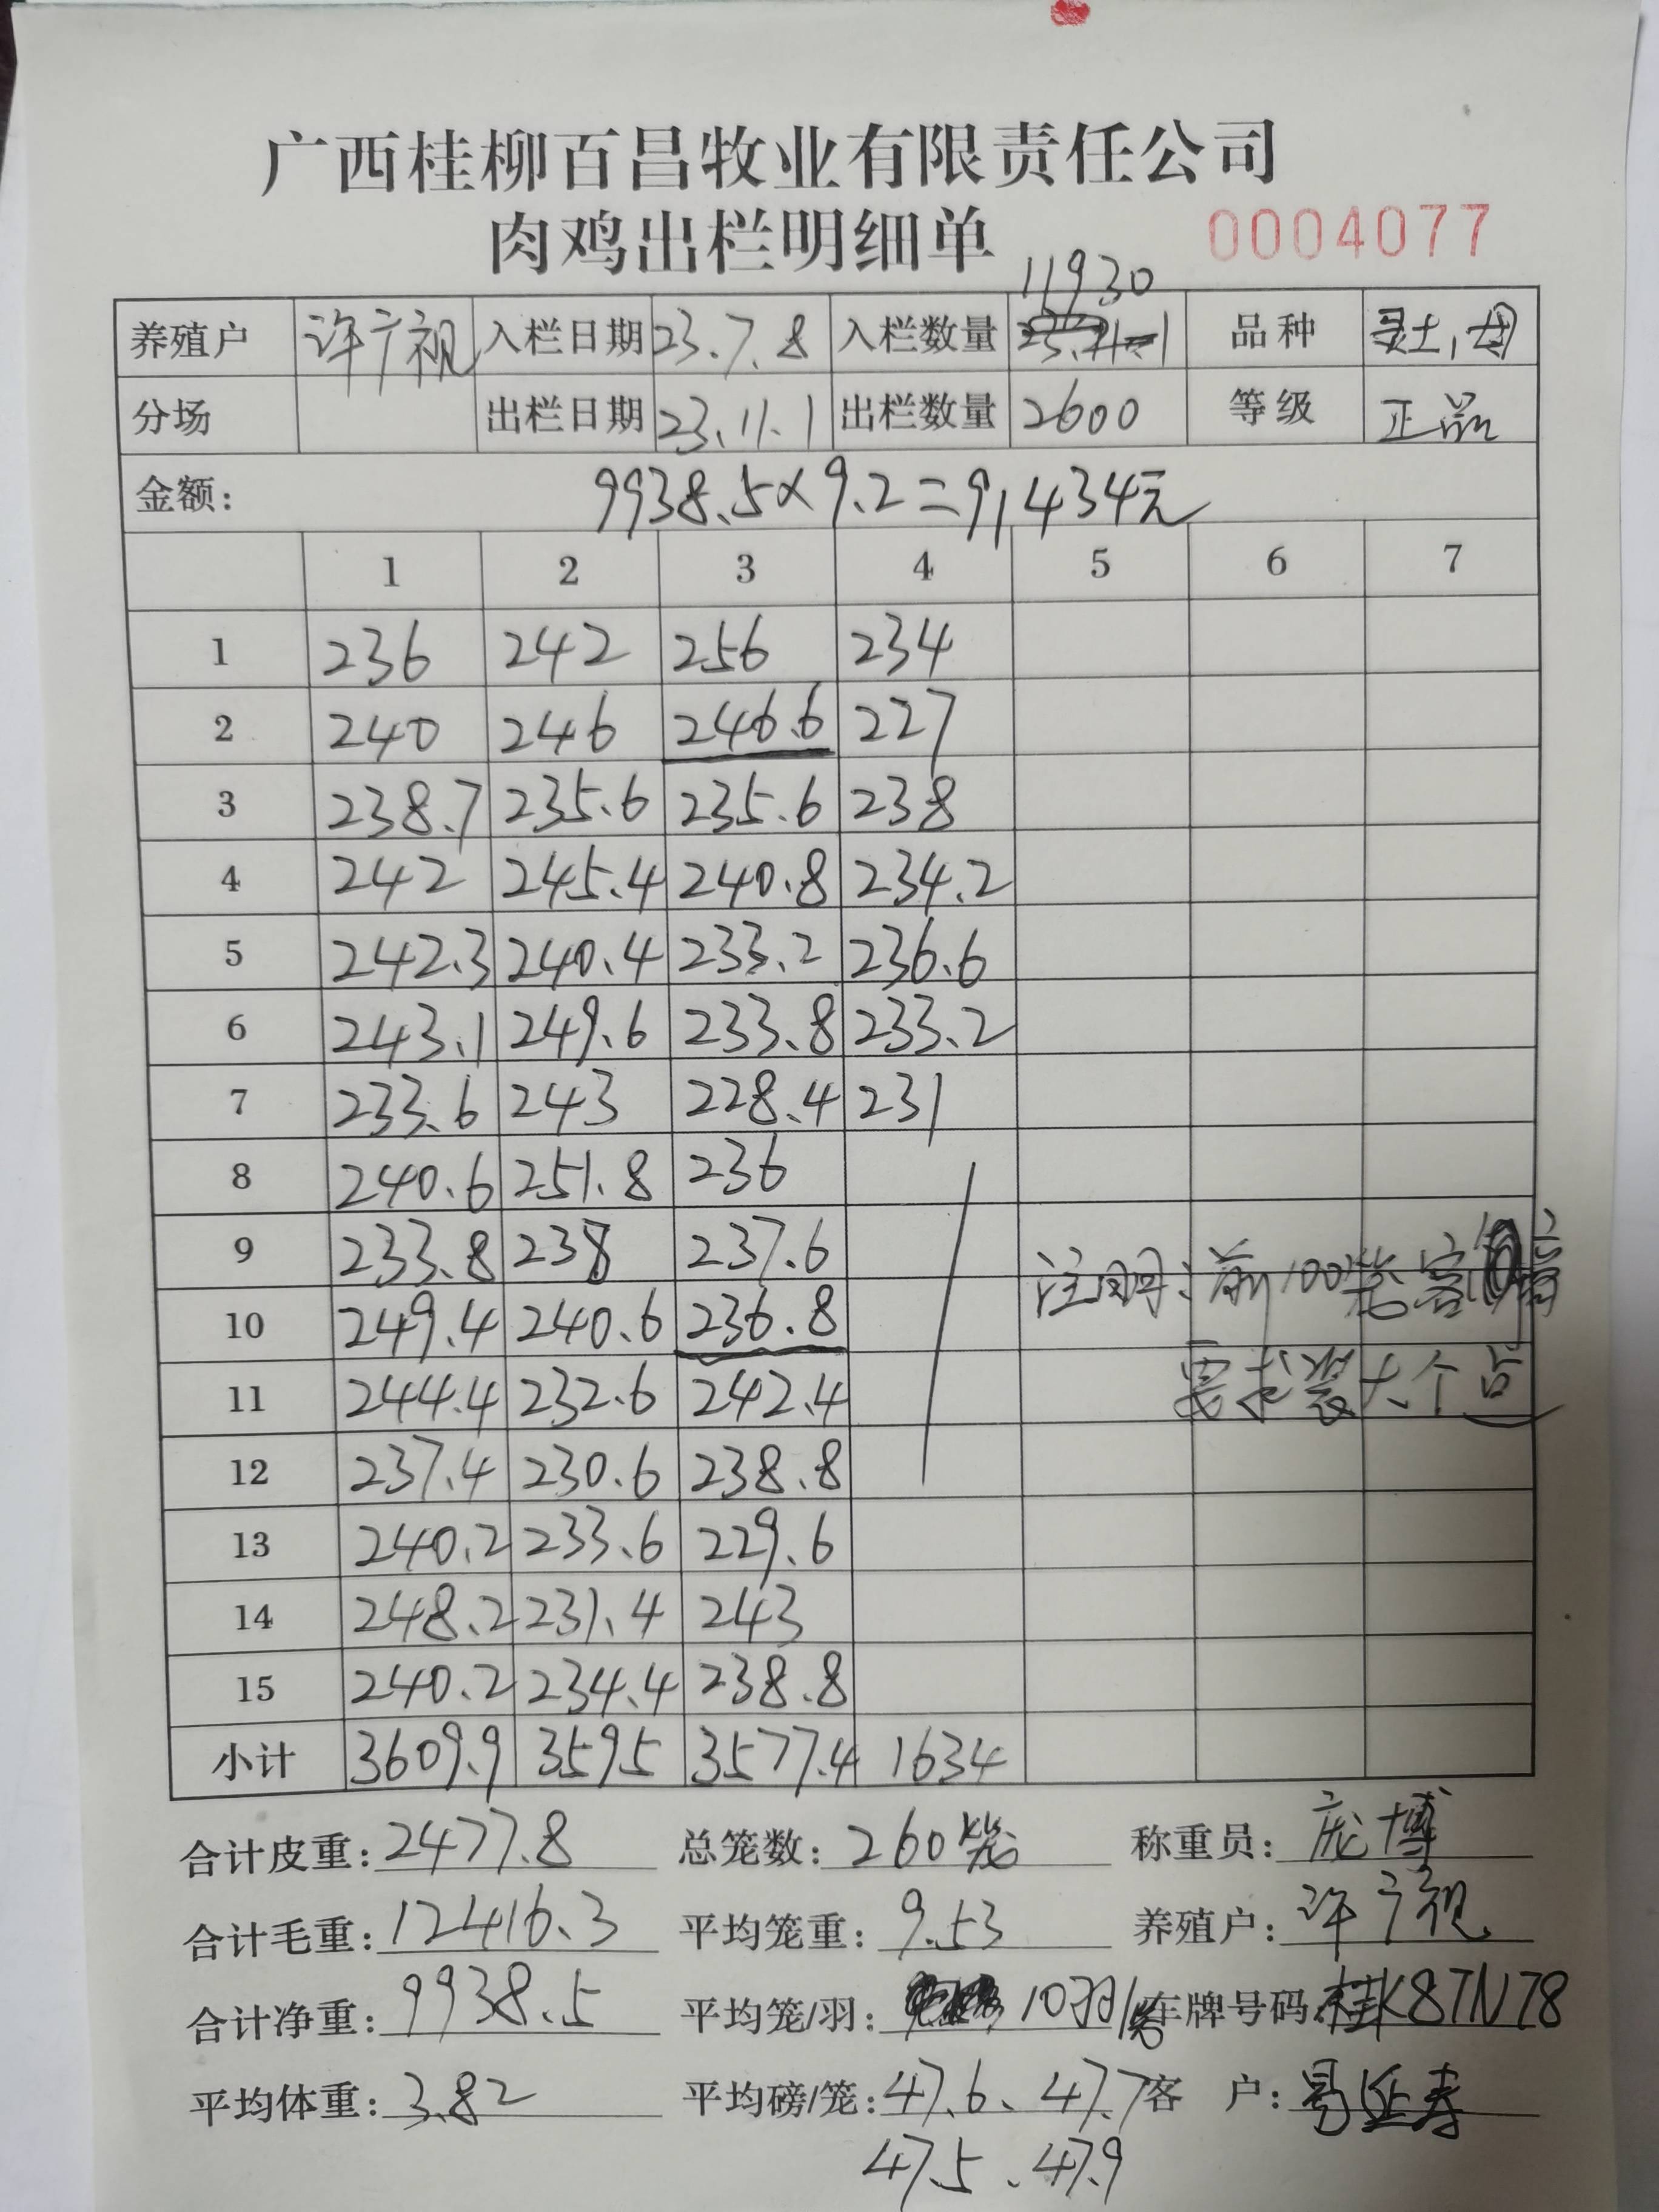 广西桂柳百昌牧业有限责任公司
肉鸡出栏明细单 0004077
11930
养殖户 许广祝 入栏日期 23.7.8 入栏数量 品种 土,母
分场 出栏日期 23.11.1 出栏数量 2600 等级 正品
金额: 9938.5×9.2=91434元
1 2 3 4 5 6 7
1 236 242 256 234
2 240 246 246.6 227
3 238.7 235.6 235.6 238
4 242 245.4 240.8 234.2
5 242.3 240.4 233.2 236.6
6 243.1 249.6 233.8 233.2
7 233.6 243 228.4 231
8 240.6 251.8 236
9 233.8 238 237.6
注明:前100笼客
10 249.4 240.6 236.8
11 244.4 232.6 242.4
要求装大个点
12 237.4 230.6 238.8
13 240.2 233.6 229.6
14 248.2 231.4 243
15 240.2 234.4 238.8
小计 3609.9 3595 3577.4 1634
合计皮重: 2477.8 总笼数: 260笼 称重员: 庞博
合计毛重: 12416.3 平均笼重: 9.53 养殖户: 许广祝
合计净重: 9938.5 平均笼/羽: 10羽/笼 车牌号码: 桂K87N78
平均体重: 3.82 平均磅/笼: 47.6、47.7 客 户: 延寿
47.5、47.9